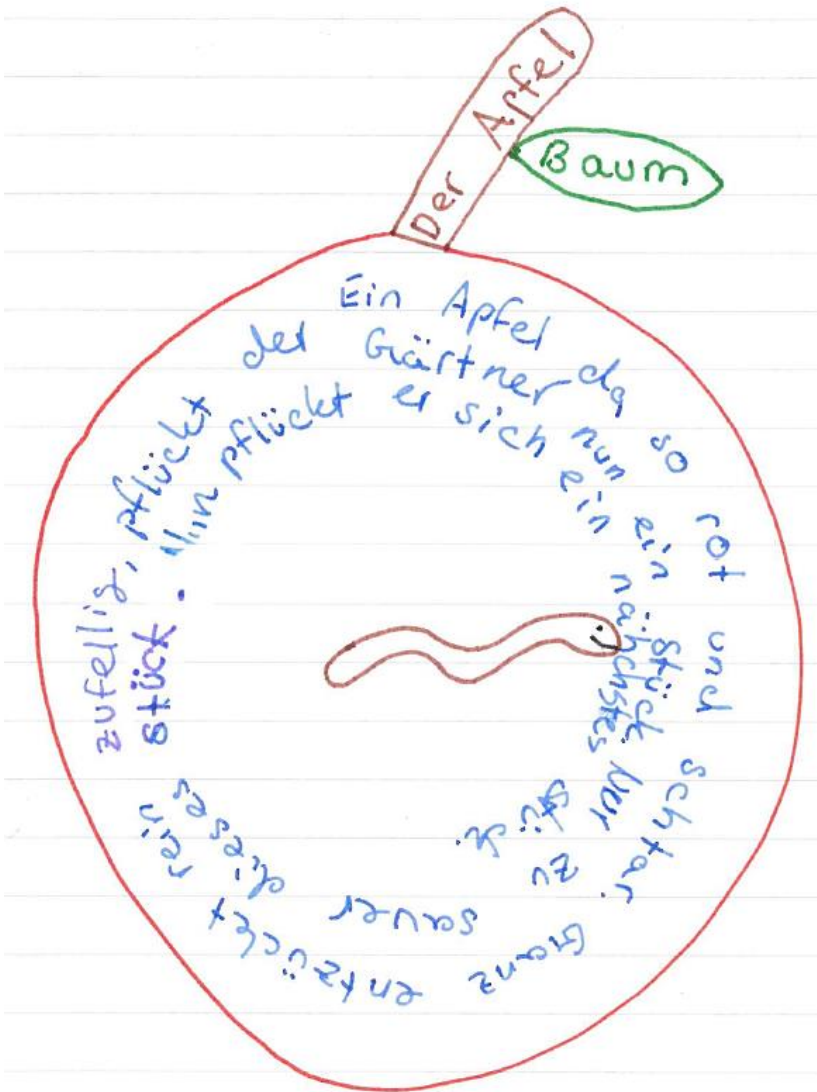 Der Apfel
Baum
Ein Apfel da so rot und schtar. Ganz entzückt rein zufellig, pflückt
der Gärtner nun ein stück. Nur zu sauer dieses stück. Nun pflückt
er sich ein nähchstes stück.